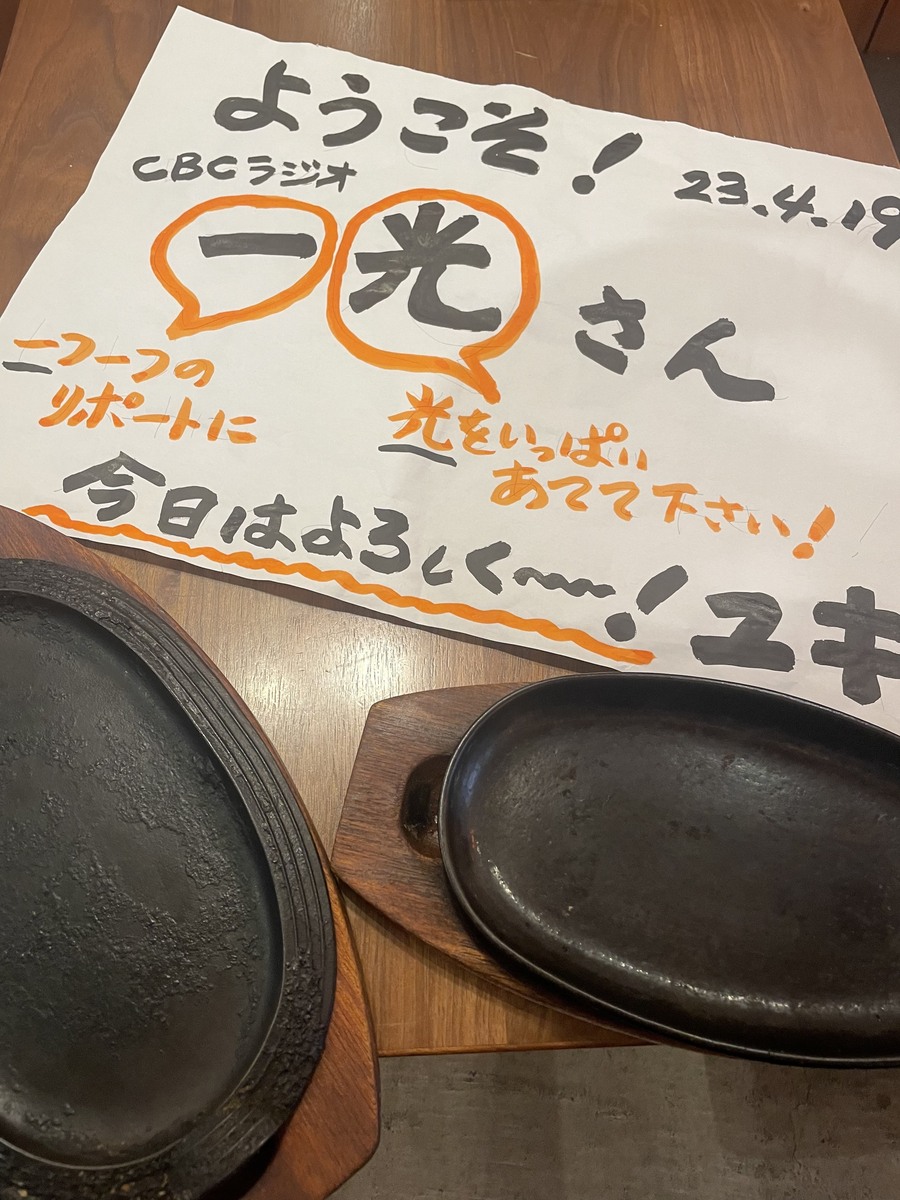 ようこそ!
23.4.19
CBCラジオ
一光さん
一つ一つの
リポートに
光をいっぱい
あてて下さい!
今日はよろしく〜!
ユキ